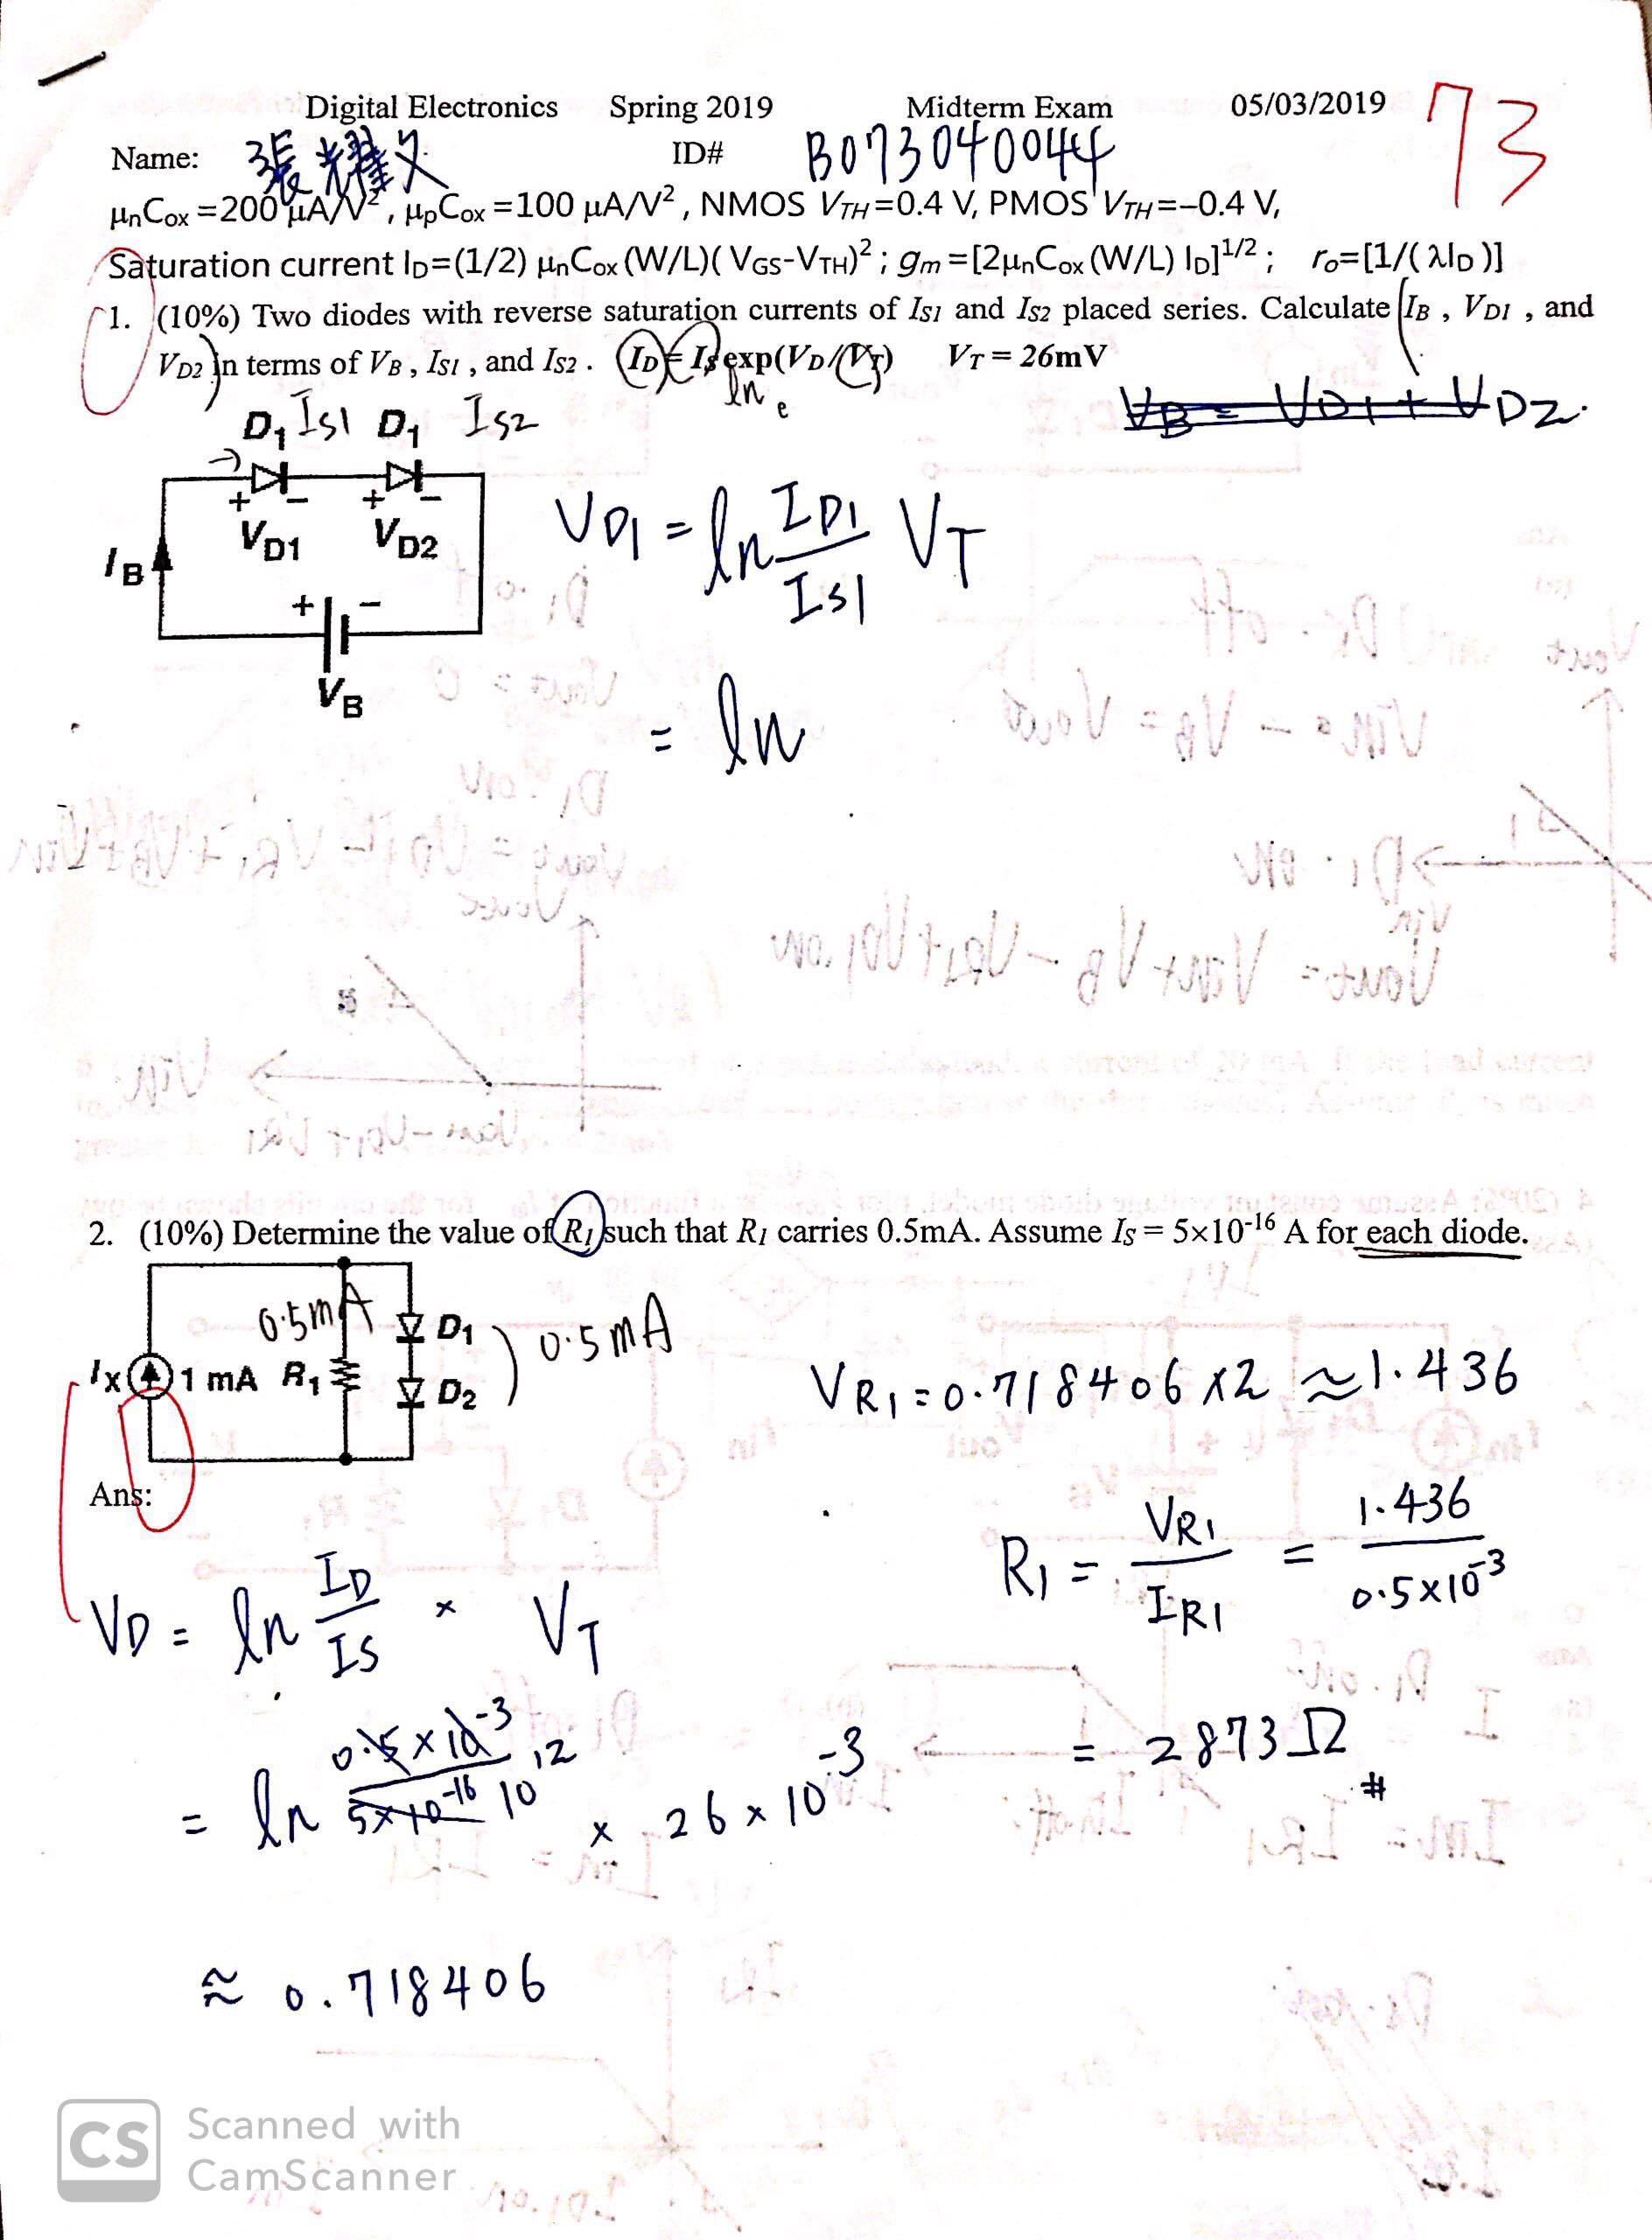 Digital Electronics Spring 2019 Midterm Exam 05/03/2019 73
Name: 張耀文 ID# B073040044
μnCox =200 μA/V² , μpCox =100 μA/V² , NMOS VTH=0.4 V, PMOS VTH=−0.4 V,
Saturation current ID=(1/2) μnCox (W/L)( VGS-VTH)² ; gm =[2μnCox (W/L) ID]1/2 ; ro=[1/( λID )]
1. (10%) Two diodes with reverse saturation currents of IS1 and IS2 placed series. Calculate IB , VD1 , and
VD2 in terms of VB , IS1 , and IS2 . ID = IS exp(VD/VT) VT = 26mV
ln e
VB = VD1 + VD2.
D1 IS1 D1 IS2
+ − + −
VD1 VD2
IB
+ −
VB
VD1 = ln ID1/IS1 VT
= ln
2. (10%) Determine the value of R1 such that R1 carries 0.5mA. Assume IS = 5×10-16 A for each diode.
0.5mA D1 0.5mA
IX 1 mA R1 D2
VR1 = 0.718406 x2 ≈ 1.436
Ans:
R1 = VR1/IR1 = 1.436/0.5x10-3
VD = ln ID/IS x VT
= ln 0.5x10-3/5x10-16 1012 x 26 x 10-3
= 2873Ω #
≈ 0.718406
CS Scanned with
CamScanner